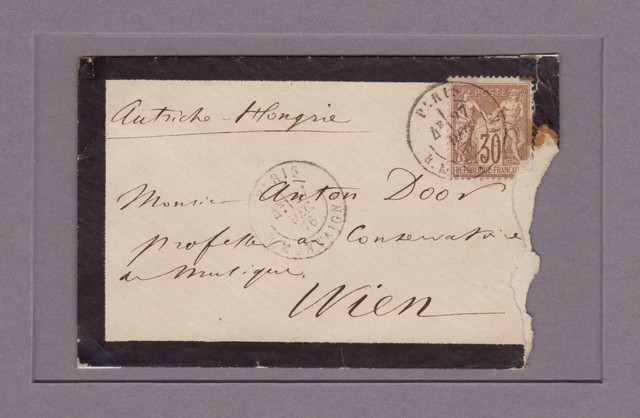 POSTE
30
RÉPUBLIQUE FRANÇAISE
PARIS
Autriche-Hongrie
PARIS
Monsieur Anton Door
professeur au Conservatoire
de Musique.
Wien